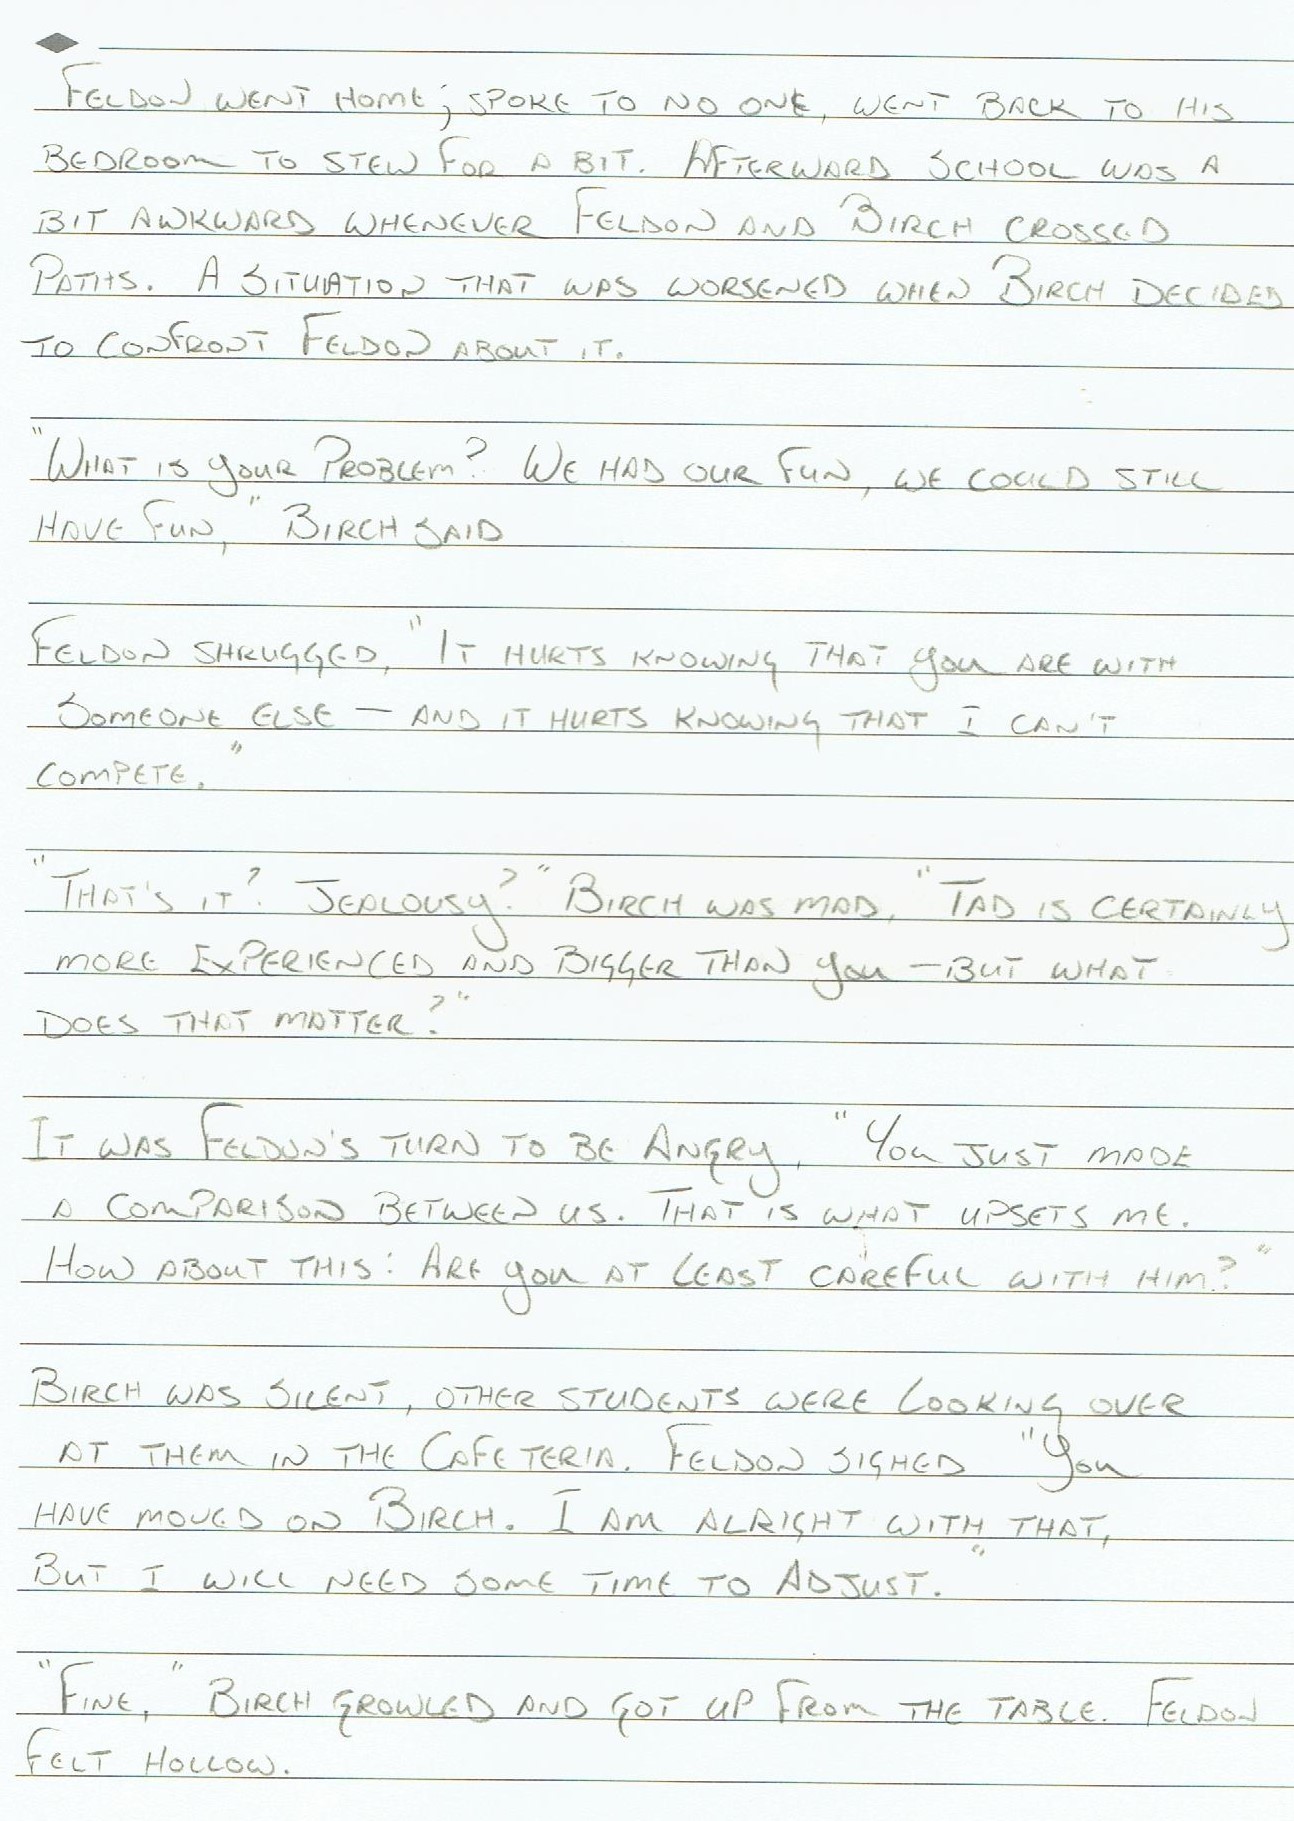 Feldon went home; spoke to no one, went back to his
bedroom to stew for a bit. Afterward school was a
bit awkward whenever Feldon and Birch crossed
paths. A situation that was worsened when Birch decided
to confront Feldon about it.
"What is your problem? We had our fun, we could still
have fun," Birch said
Feldon shrugged, "It hurts knowing that you are with
someone else — and it hurts knowing that I can't
compete."
"That's it? Jealousy?" Birch was mad, "Tad is certainly
more experienced and bigger than you — but what
does that matter?"
It was Feldon's turn to be angry, "You just made
a comparison between us. That is what upsets me.
How about this: Are you at least careful with him?"
Birch was silent, other students were looking over
at them in the cafeteria. Feldon sighed "You
have moved on Birch. I am alright with that,
but I will need some time to adjust."
"Fine," Birch growled and got up from the table. Feldon
felt hollow.